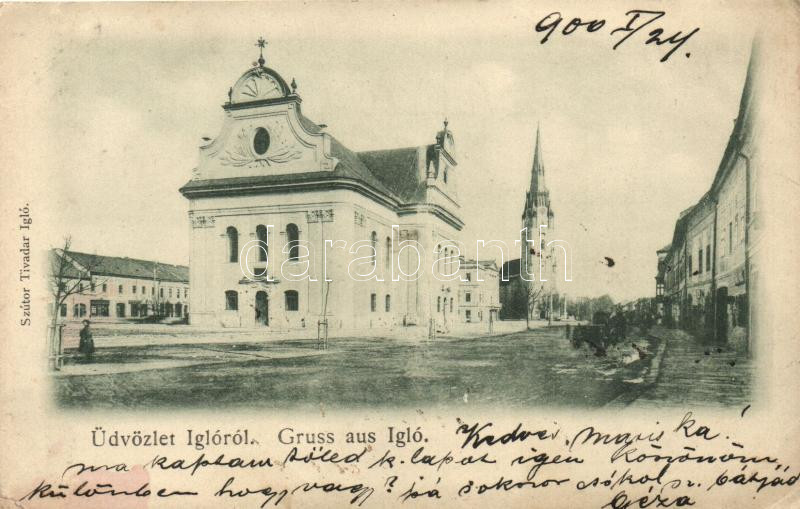 900 I/24
Szútor Tivadar Igló.
darabanth
Üdvözlet Iglóról. Gruss aus Igló.
Kedves Mariska!
ma kaptam tőled k. lapot igen köszönöm,
különben hogy vagy? pá sokszor csókol sz. bátyád
Géza